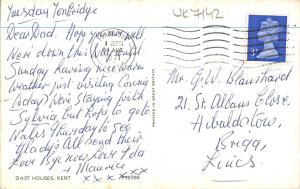 Tuesday Tonbridge
WK7142
Dear Dad. Hope you well
Were down this way until
Sunday having nice warm
weather just visiting Connie
today were staying with
Sylvia, but hope to go to
Thursday to see
Gladys All send their
Love Bye now Love Ida
+ Maurice xxxxxx
OAST HOUSES, KENT
Mr. G.W. Blanchard
21. St. Albans Close,
Hibaldstow,
Brigg,
Lincs.